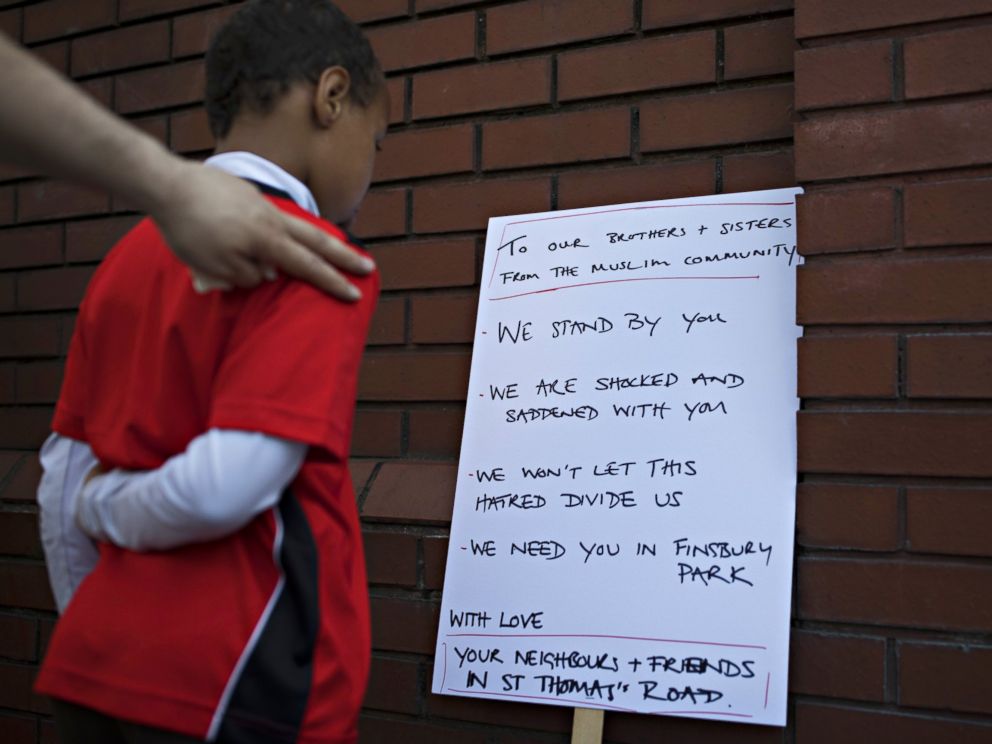 TO OUR BROTHERS + SISTERS
FROM THE MUSLIM COMMUNITY
- WE STAND BY YOU
- WE ARE SHOCKED AND
SADDENED WITH YOU
- WE WON'T LET THIS
HATRED DIVIDE US
- WE NEED YOU IN FINSBURY
PARK
WITH LOVE
YOUR NEIGHBOURS + FRIENDS
IN ST THOMAS'S ROAD.